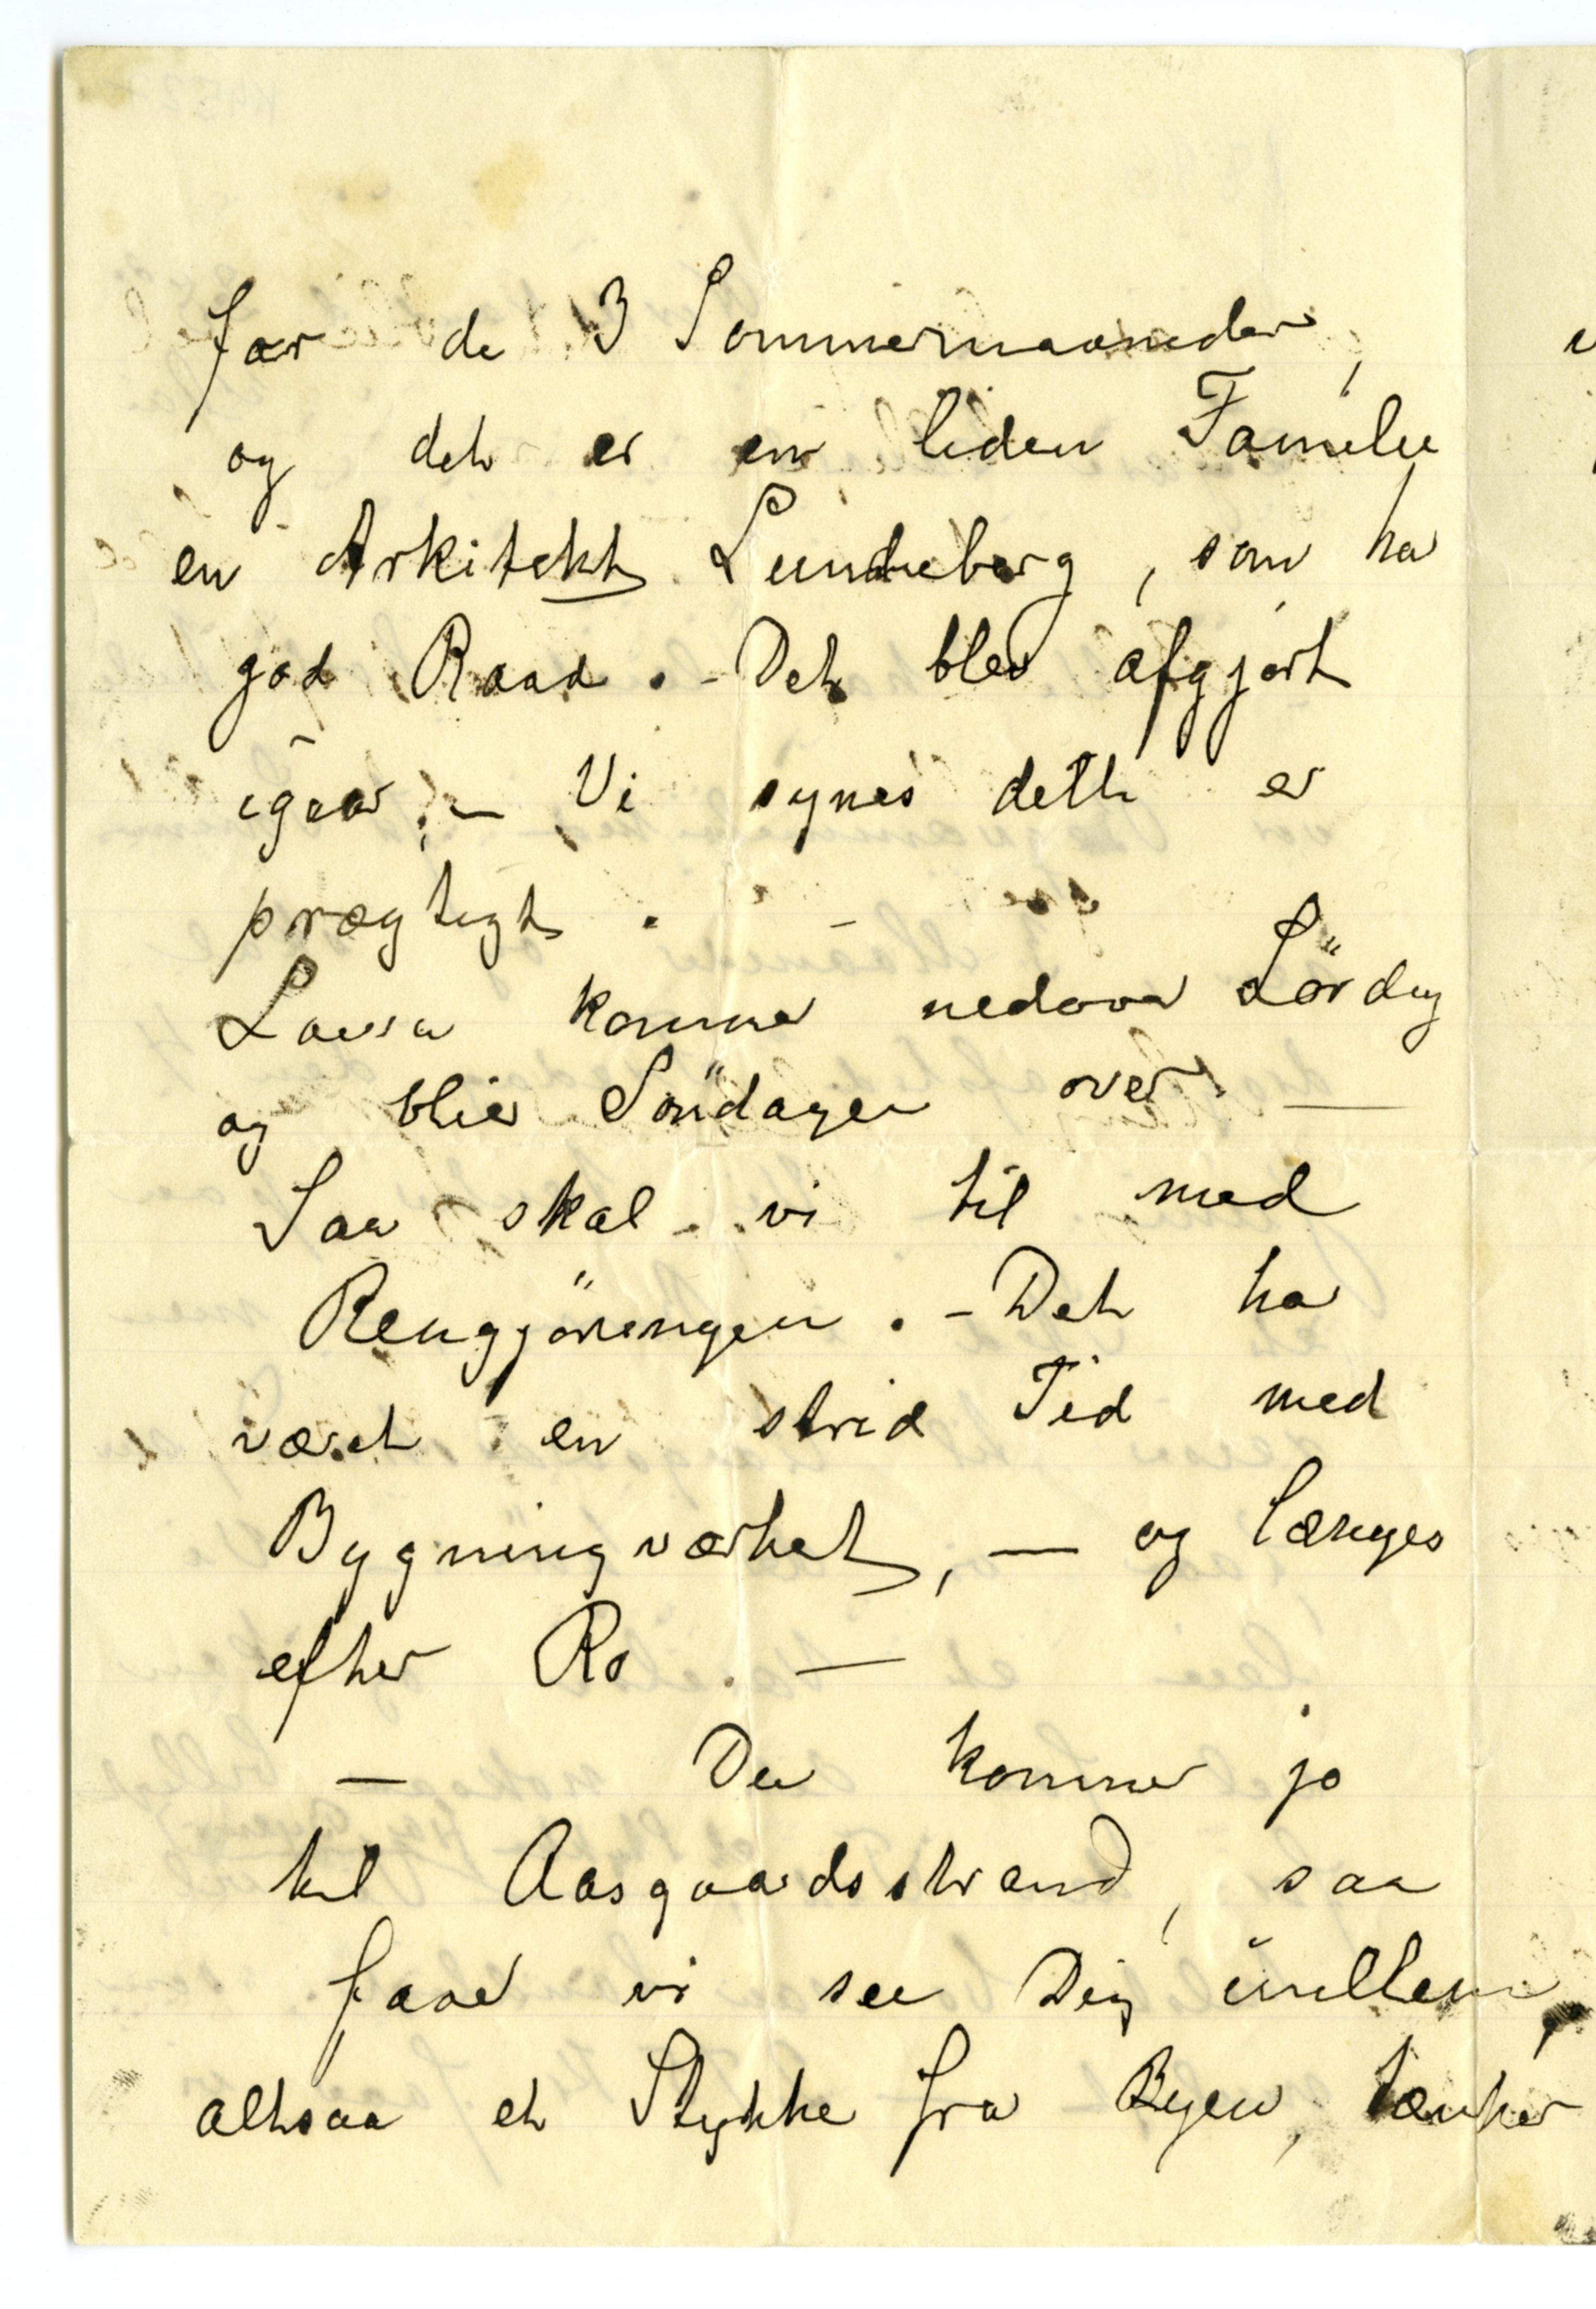 for de 3 Sommermaaneder,
og det er en liden Familie
en Arkitekt Lundeberg, som har
god Raad. – Det blev afgjort
igaar! – Vi synes dette er
prægtigt. –
Laura kommer nedover Lördag
og blier Söndagen over –
Saa skal vi til med
Rengjöringen. – Det har
været en strid Tid med
Bygningværket, – og længes
efter Ro. –
– Du kommer jo
til Aasgaardsstrand, saa
faar vi see Dig imellem,
altsaa et Stykke fra Byen, tænker